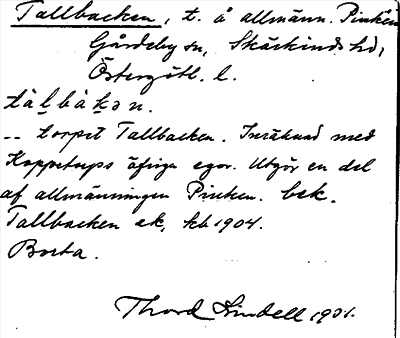 Tallbacken, t. å allmänn. Pinken
Gårdeby sn, Skärkinds hd,
Östergötl. l.
tàl̥bàkən.
-- torpet Tallbacken. Inräknad med
Koppetorps äfriga egor. Utgör en del
af allmänningen Pinken. bek.
Tallbacken ek, kb 1904.
Borta.
Thord Lindell 1931.